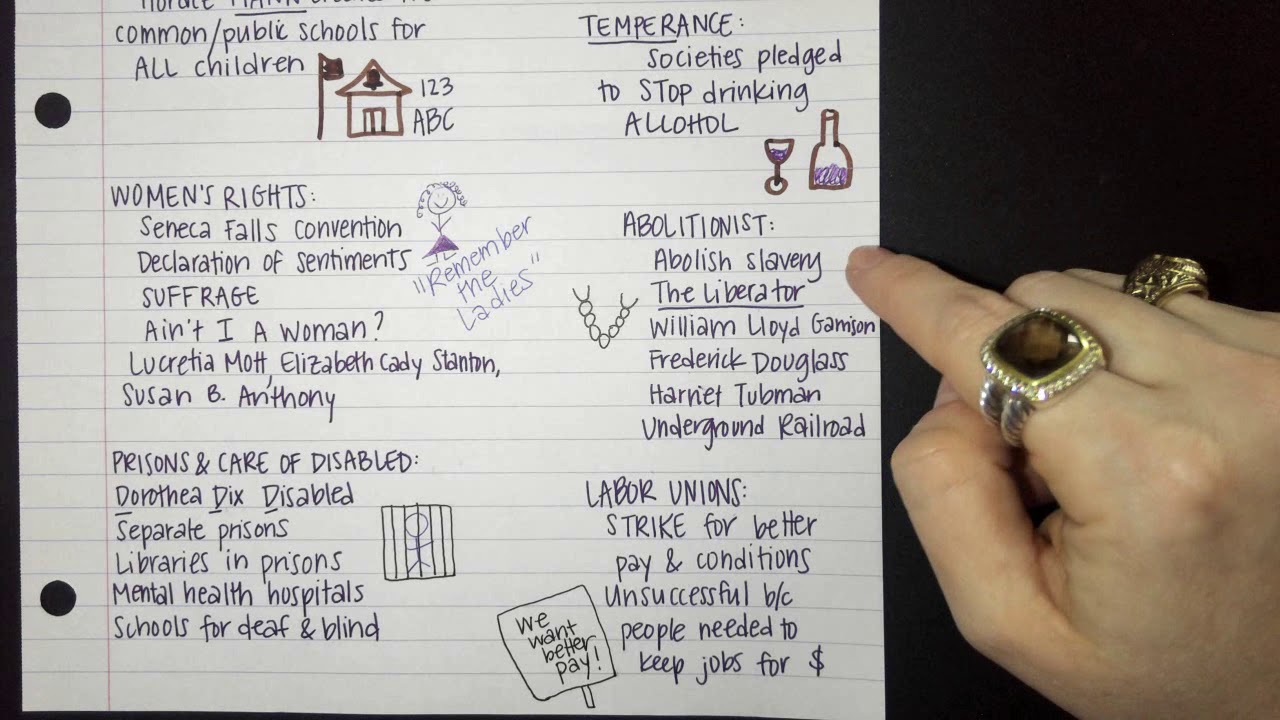 Horace MANN
common/public schools for
ALL children
123
ABC
TEMPERANCE:
Societies pledged
to STOP drinking
ALCOHOL
WOMEN'S RIGHTS:
Seneca Falls Convention
Declaration of Sentiments
SUFFRAGE
Ain't I A Woman?
Lucretia Mott, Elizabeth Cady Stanton,
Susan B. Anthony
"Remember
the
Ladies"
ABOLITIONIST:
Abolish slavery
The Liberator
William Lloyd Garrison
Frederick Douglass
Harriet Tubman
Underground Railroad
PRISONS & CARE OF DISABLED:
Dorothea Dix Disabled
Separate prisons
Libraries in prisons
Mental health hospitals
Schools for deaf & blind
LABOR UNIONS:
STRIKE for better
pay & conditions
Unsuccessful b/c
people needed to
keep jobs for $
We
want
better
pay!